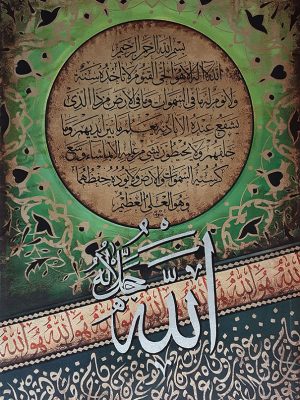 بسم الله الرحمن الرحيم
الله لا إله إلا هو الحي القيوم لا تأخذه سنة
ولا نوم له ما في السموات وما في الأرض من ذا الذي
يشفع عنده إلا بإذنه يعلم ما بين أيديهم وما
خلفهم ولا يحيطون بشيء من علمه إلا بما شاء وسع
كرسيه السموات والأرض ولا يؤده حفظهما
وهو العلي العظيم
الله جل جلاله
هو الله هو الله هو الله هو الله هو الله